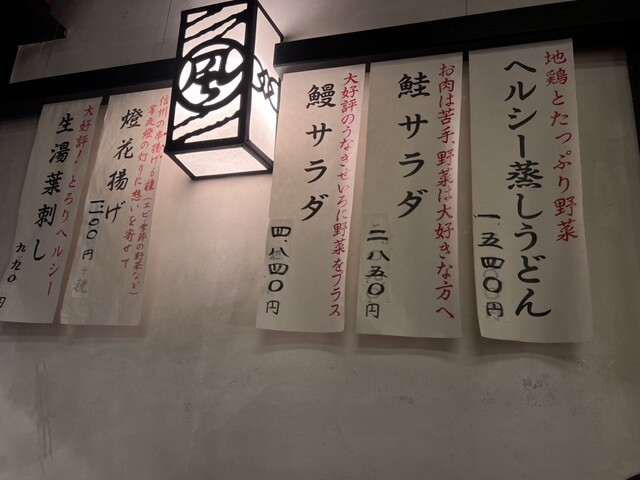 地鶏とたっぷり野菜
ヘルシー蒸しうどん
一、五四〇円
お肉は苦手、野菜は大好きな方へ
鮭サラダ
二、八五〇円
大好評のうなぎせいろに野菜をプラス
鰻サラダ
四、八四〇円
信州の串揚げ6種(エビ・季節の野菜など)
常夜燈の灯りに想いを寄せて
燈花揚げ
円
大好評!とろりヘルシー
生湯葉刺し
九九〇円